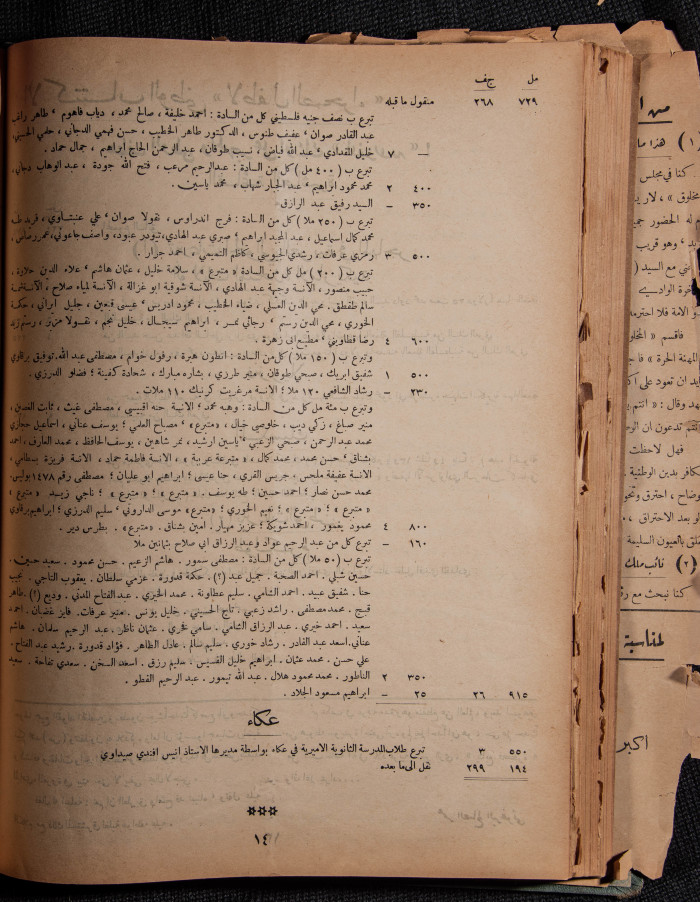 مل ج ف
منقول ما قبله ٧٢٩ ٢٦٨
تبرع ب نصف جنيه فلسطيني كل من السادة : احمد خليفة ، صالح محمد ، دياب فاهوم ، طاهر
عبد القادر صوان ، عفيف طنوس ، الدكتور طاهر الخطيب ، حسن فهمي الدجاني ، حلمي الحسيني
خليل المقدادي ، عبد الله فياض ، نسيب طوقان ، عبد الرحمن الحاج ابراهيم ، جمال حماد . — ٧
تبرع ب ( ٤٠٠ مل ) كل من السادة : عبدالرحيم مرعب ، فتح الله جودة ، عبد الوهاب دجاني
محمد محمود ابراهيم ، عبد الجبار شهاب ، محمد ياسين . ٤٠٠ ٢
السيد رفيق عبد الرازق ٣٥٠ —
تبرع ب ( ٢٥٠ ملا ) كل من السادة : فرج اندراوس ، نقولا صوان ، علي عنبتاوي ،
محمد كمال اسماعيل ، عبد المجيد ابراهيم ، صبري عبد الهادي ، تيودر عبود ، واصف
رمزي عرفات ، رشدي الجيوسي ، كاظم التميمي ، احمد جرار . ٥٠٠ ٣
تبرع ب ( ٢٠٠ ) مل كل من السادة « متبرع » ، سلامة خليل ، عثمان هاشم ، علاء الدين حلاوة ،
حبيب منصور ، الآنسة وجيهة عبد الهادي ، الآنسة شوقية ابو غزالة ، الآنسة لمياء صلاح ، الآنسة
سالم طقطق . محي الدين ، ضياء الخطيب ، محمود ادريس ، عيسى قبعين ، جليل ايراني ،
الخوري ، محي الدين رستم ، رجائي نمر ، ابراهيم سيجال ، خليل نجم ، نقولا
رضا قطاويني ، مطيع ابي زهرة . ٦٠٠ ٤
وتبرع ب ( ١٥٠ ملا ) كل من السادة : انطون هيرة ، رفول خوام ، مصطفى عبد الله ، توفيق برقاوي
شفيق ابريك ، صبحي طوقان ، منير طرزي ، بشاره مبارك ، شحادة كفينة ؛ فضلو الدرزي . ٥٠٠ ١
رشاد الشافعي ١٢٠ ملا ؛ الآنسة مرغريت كرنيك ١١٠ ملات . ٢٣٠ —
وتبرع ب مئة مل كل من السادة : وهبه محمد ، الآنسة حنه اقبيسي ، مصطفى غيث ،
منير صباغ ، زكي ديب ، خلوصي خيال ، «متبرع» ، مصباح العلمي ؛ يوسف عناني ، اسماعيل حجازي
محمد عبد الرحمن ، صبحي الزعبي ، ياسين ارشيد ، نمر شاهين ، يوسف الحافظ ، محمد العارف ، احمد
بشناق ، حسن محمد ، محمد كمال ، « متبرعة عربية » ، الآنسة فاطمة حماد ، الآنسة فريزة بسطامي ،
الآنسة عفيفة ملحس ، جريس القري ، حنا عيسى ؛ ابراهيم ابو عليان ؛ مصطفى رقم ١٤٧٨ بوليس
محمد حسن نصار ؛ احمد حسين ؛ طه يوسف . « متبرع » ؛ « متبرع » ؛ ناجي زيد « متبرع » ؛
« متبرع » ؛ « متبرع » ؛ نعيم الخوري ؛ «متبرع» موسى الداروني ، سليم الدرزي ؛ ابراهيم برقاوي
محمود يغمور ، احمد شوبكة ؛ عزيز مهيار . امين بشناق . «متبرع» . بطرس دير . ٨٠٠ ٤
تبرع كل من عبد الرحيم عواد وعبد الرزاق ابي صلاح بثمانين ملا ١٦٠ —
تبرع ب ( ٥٠ ملا ) كل من السادة : مصطفى سمور . هاشم الزعيم . حسن محمود . سعيد حسين .
حسين شبلي . احمد الصحة . جميل عبد (؟) . حكمة قدورة . عزمي سلطان . يعقوب التاجي . نجيب
حنا . شفيق عبيد . احمد الشامي . سليم عطاونة . محمد الخيري . عبد الفتاح المدني . وديع (؟) . طاهر
قبج . محمد مصطفى . راشد زعبي . تاج الحسيني . خليل يونس . منير عرفات . فايز غضبان . احمد
سعيد . احمد خيري . عبد الرزاق الشامي . سامي فخري . عثمان ناظر . عبد الرحيم سلمان . هاشم
عناني . اسعد عبد القادر . رشاد خوري . سليم سالم . عادل الظاهر . فؤاد قدورة . رشيد عبد الفتاح .
علي حسن . محمد عثمان . ابراهيم خليل القسيس . سليم رزق . اسعد السخن . سعدي تفاحة . سعيد
الناطور . محمد محمود هلال . عبد الله تيمور . عبد الرحيم القطو . ٣٥٠ ٢
ابراهيم مسعود الجلاد . ٢٥ — ٩١٥ ٢٦
عكاء
تبرع طلاب المدرسة الثانوية الاميرية في عكاء بواسطة مديرها الاستاذ انيس افندي صيداوي ٥٥٠ ٣
نقل الى ما بعده ١٩٤ ٢٩٩
١٤
هذا ما
كنا في مجلس
مخلوق » ،
له الحضور
وهو قريب
مع السيد (
الوادسي
الامة فلا
فاقسم «
المهنة الحرة »
ان تعود على
وقال : « انتم
تدعون ان
فهل لاحظت
بدين الوطنية
وضاح ، احترق
بعد الاحتراق
بالعيون السليمة
( ٢ ) نائب ملك
كنا نبحث مع
لمناسبة
اكبر